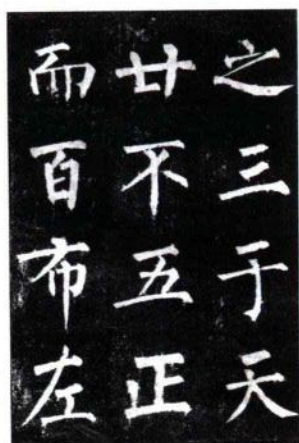 之三于天
廿不五正
而百布左